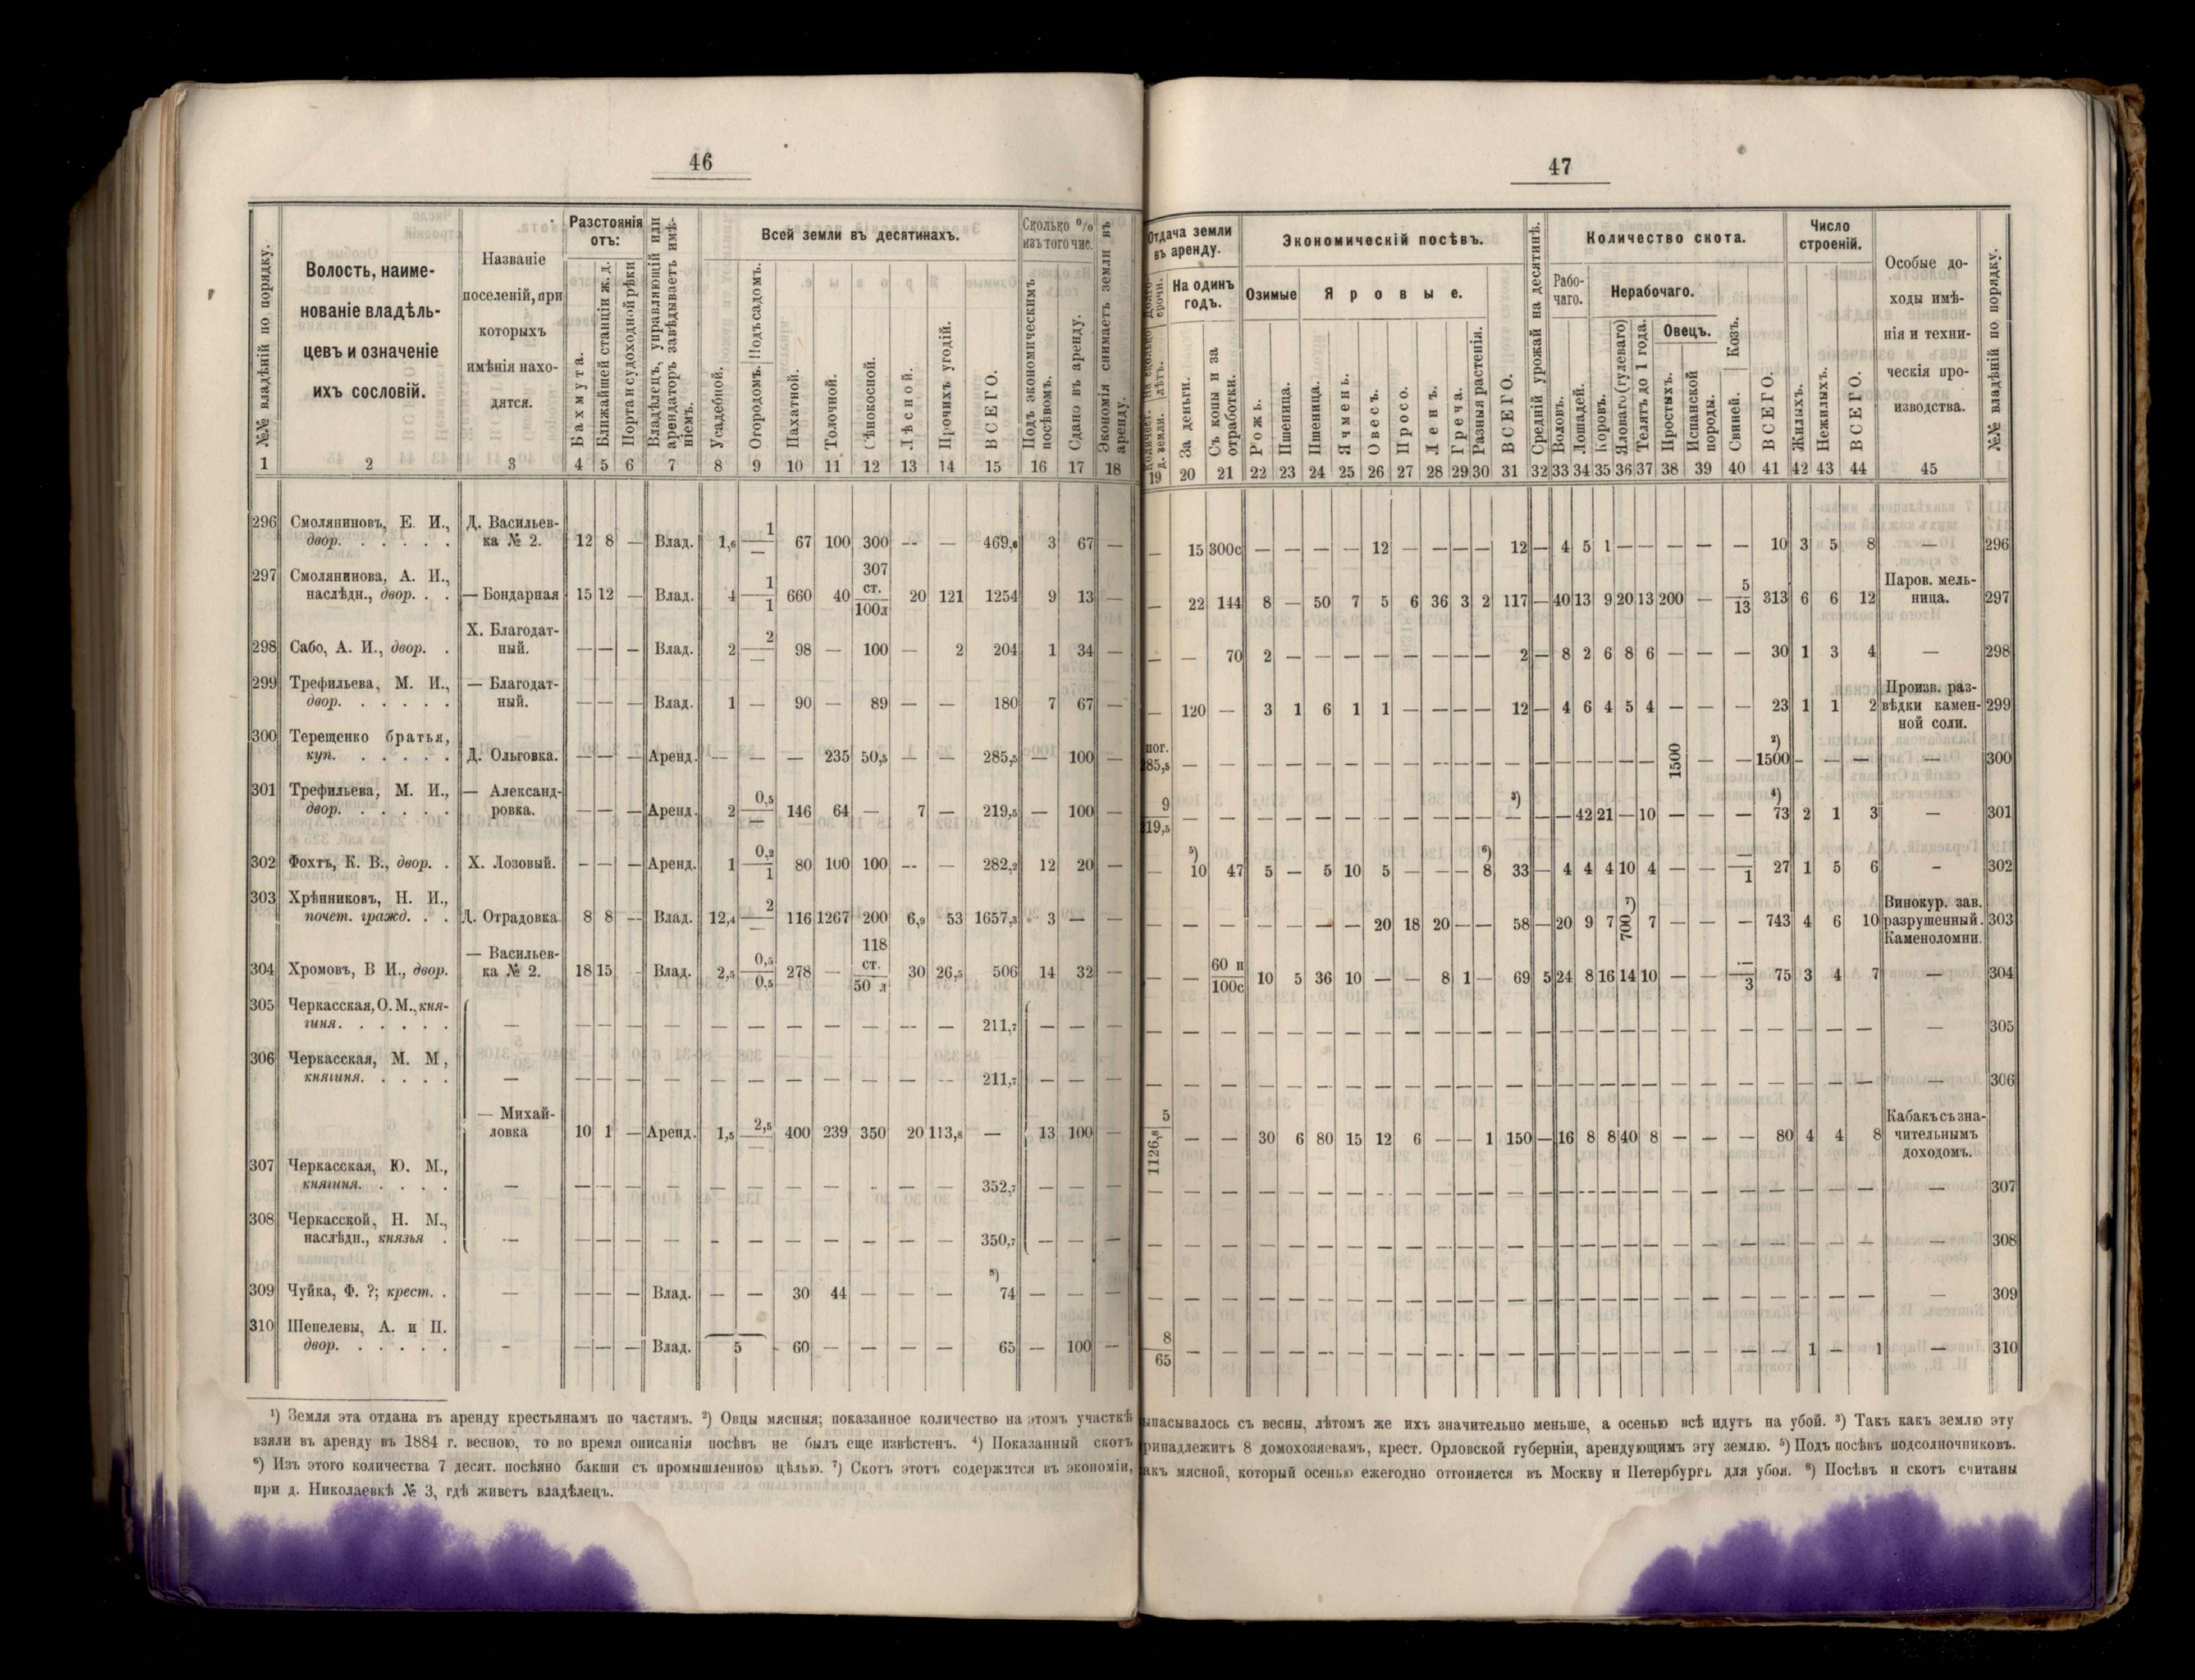 46
№№ владѣній по порядку.
Волость, наиме-
нованіе владѣль-
цевъ и означеніе
ихъ сословій.
Названіе
поселеній, при
которыхъ
имѣнія нахо-
дятся.
Разстоянія
отъ:
Бахмута.
Ближайшей станціи ж. д.
Порта и судоходной рѣки
Владѣлецъ, управляющій или
арендаторъ завѣдываетъ имѣ-
ніемъ.
Всей земли въ десятинахъ.
Усадебной.
Огородомъ. Подъ садомъ.
Пахатной.
Толочной.
Сѣнокосной.
Лѣсной.
Прочихъ угодій.
ВСЕГО.
Сколько %
изъ того чис.
Подъ экономическимъ
посѣвомъ.
Сдано въ аренду.
Экономія снимаетъ земли въ
аренду.
1 2 3 4 5 6 7 8 9 10 11 12 13 14 15 16 17 18
296 Смоляниновъ, Е. И., Д. Васильев-
двор. . . . . . ка № 2. 12 8 — Влад. 1,6 1/— 67 100 300 -- — 469,6 3 67 —
297 Смолянинова, А. И.,
наслѣдн., двор. . . — Бондарная 15 12 — Влад. 4 1/1 660 40 307 ст./100л 20 121 1254 9 13 —
298 Сабо, А. И., двор. . Х. Благодат-
ный. — — — Влад. 2 2/— 98 — 100 — 2 204 1 34 —
299 Трефильева, М. И., — Благодат-
двор. . . . . . ный. — — — Влад. 1 — 90 — 89 — — 180 7 67 —
300 Терещенко братья,
куп. . . . . . Д. Ольговка. — — — Аренд. — — — 235 50,5 — — 285,5 — 100 —
301 Трефильева, М. И., — Александ-
двор. . . . . . ровка. — — — Аренд. 2 0,5/— 146 64 — 7 — 219,5 — 100 —
302 Фохтъ, К. В., двор. . Х. Лозовый. — — — Аренд. 1 0,2/1 80 100 100 -- — 282,2 12 20 —
303 Хрѣнниковъ, Н. И.,
почет. гражд. . . Д. Отрадовка. 8 8 — Влад. 12,4 2/— 116 1267 200 6,9 53 1657,3 3 — —
304 Хромовъ, В И., двор. — Васильев-
ка № 2. 18 15 - Влад. 2,5 0,5/0,5 278 — 118 ст./50 л 30 26,5 506 14 32 —
305 Черкасская, О. М., кня-
гиня. . . . . . — — — — — — — — — — -- — 211,7 — — —
306 Черкасская, М. М,
княгиня. . . . . — — — — — — — — — — — -- 211,7 — — —
— Михай-
ловка 10 1 — Аренд. 1,5 2,5/— 400 239 350 20 113,8 — 13 100 —
307 Черкасская, Ю. М.,
княгиня. . . . . — — — — — — — — — — — — 352,7 — — —
308 Черкасской, Н. М.,
наслѣдн., князья . — — — — — - — — — — — — 350,7 — — —
309 Чуйка, Ф. ?; крест. . — — — — Влад. — — 30 44 — — — 8) 74 — — —
310 Шепелевы, А. и П.
двор. . . . . . - — — — Влад. 5 60 — — — — 65 — 100 —
¹) Земля эта отдана въ аренду крестьянамъ по частямъ. ²) Овцы мясныя; показанное количество на этомъ участкѣ
взяли въ аренду въ 1884 г. весною, то во время описанія посѣвъ не былъ еще извѣстенъ. ⁴) Показанный скотъ
⁶) Изъ этого количества 7 десят. посѣяно бакши съ промышленною цѣлью. ⁷) Скотъ этотъ содержится въ экономіи,
при д. Николаевкѣ № 3, гдѣ живетъ владѣлецъ.
47
Отдача земли
въ аренду.
На одинъ
годъ.
За деньги.
Съ копы и за
отработки.
Экономическій посѣвъ.
Озимые
Яровые.
Рожь.
Пшеница.
Пшеница.
Ячмень.
Овесъ.
Просо.
Ленъ.
Греча.
Разныя растенія.
ВСЕГО.
Средній урожай на десятинѣ.
Количество скота.
Рабо-
чаго.
Нерабочаго.
Воловъ.
Лошадей.
Коровъ.
Яловаго (гулеваго)
Телятъ до 1 года.
Овецъ.
Простыхъ.
Испанской
породы.
Козъ.
Свиней.
ВСЕГО.
Число
строеній.
Жилыхъ.
Нежилыхъ.
ВСЕГО.
Особые до-
ходы имѣ-
нія и техни-
ческія про-
изводства.
№№ владѣній по порядку.
19 20 21 22 23 24 25 26 27 28 29 30 31 32 33 34 35 36 37 38 39 40 41 42 43 44 45
— 15 300с — — — — 12 — — — — 12 — 4 5 1 — — — — — 10 3 5 8 — 296
— 22 144 8 — 50 7 5 6 36 3 2 117 — 40 13 9 20 13 200 — 5/13 313 6 6 12 Паров. мель-
ница. 297
— — 70 2 — — — — — — — — 2 — 8 2 6 8 6 — — — 30 1 3 4 — 298
— 120 — 3 1 6 1 1 — — — — 12 — 4 6 4 5 4 — — — 23 1 1 2 Произв. раз-
вѣдки камен- 299
ной соли.
пог.
285,5 — — — — — — — — — — — — — — — — — — 1500 — — ²) 1500 - — — — 300
9/219,5 — — — — — — — — — — — ³) — — — 42 21 — 10 — — — ⁴) 73 2 1 3 — 301
— ⁵) 10 47 5 — 5 10 5 — — — ⁶) 8 33 — 4 4 4 10 4 — — —/1 27 1 5 6 - 302
— — — — — — — 20 18 20 — — 58 — 20 9 7 700 ⁷) 7 — — — 743 4 6 10 Винокур. зав.
разрушенный. 303
Каменоломни.
— — 60 и/100с 10 5 36 10 — — 8 1 — 69 5 24 8 16 14 10 — — —/3 75 3 4 7 — 304
— — — — — — — — — — — — — — — — — — — — — — — — — — — 305
— — — — — — — — — — — — — — — — — — — — — — — — — — — 306
5/1126,8 — — 30 6 80 15 12 6 — — 1 150 — 16 8 8 40 8 — — — 80 4 4 8 Кабакъ съ зна-
чительнымъ
доходомъ.
— — — — — — — — — — — — — — — — — — — — — — — — — — — 307
— — — — — — — — — — — — — — — — — — — — — — — — — — — 308
— — — — — — — — — — — — — — — — — — — — — — — — — — — 309
8/65 — — — — — — — — — — — — — — — — — — — — — — 1 — 1 — 310
ыпасывалось съ весны, лѣтомъ же ихъ значительно меньше, а осенью всѣ идутъ на убой. ³) Такъ какъ землю эту
ринадлежитъ 8 домохозяевамъ, крест. Орловской губерніи, арендующимъ эту землю. ⁵) Подъ посѣвъ подсолночниковъ.
акъ мясной, который осенью ежегодно отгоняется въ Москву и Петербургъ для убоя. ⁸) Посѣвъ и скотъ считаны